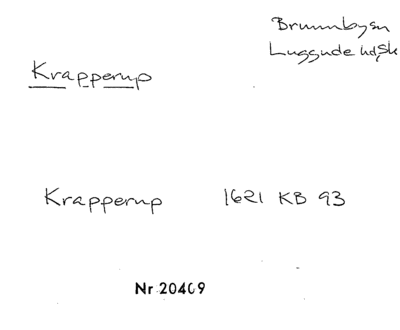 Brunnbysn
Luggude hd, Sk
Krapperup
Krapperup 1621 KB 93
Nr 20409